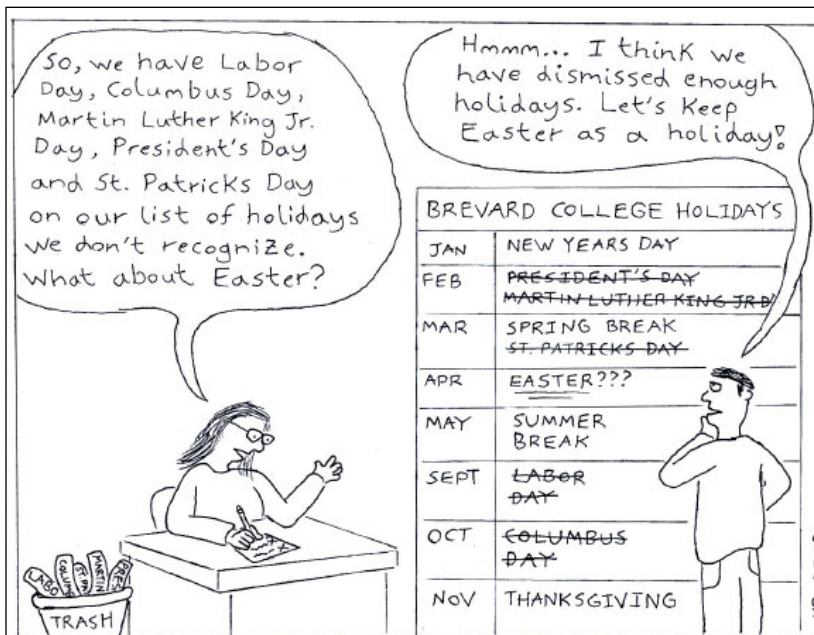 So, we have Labor
Day, Columbus Day,
Martin Luther King Jr.
Day, President's Day
and St. Patricks Day
on our list of holidays
we don't recognize.
What about Easter?
Hmmm... I think we
have dismissed enough
holidays. Let's Keep
Easter as a holiday!
BREVARD COLLEGE HOLIDAYS
JAN NEW YEARS DAY
FEB PRESIDENT'S DAY
MARTIN LUTHER KING JR D
MAR SPRING BREAK
ST. PATRICKS DAY
APR EASTER???
MAY SUMMER
BREAK
SEPT LABOR
DAY
OCT COLUMBUS
DAY
NOV THANKSGIVING
LABO
COLUM
ST. PA
MARTIN
PRES
TRASH